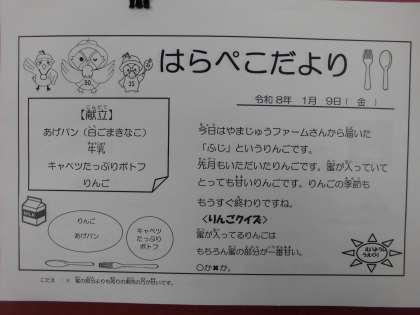 はらぺこだより
令和8年 1月 9日( 金 )
【献立】
あげパン(白ごまきなこ)
牛乳
キャベツたっぷりポトフ
りんご
りんご
あげパン
キャベツ
たっぷり
ポトフ
今日はやまじゅうファームさんから届いた
「ふじ」というりんごです。
先月もいただいたりんごです。蜜が入っていて
とっても甘いりんごです。りんごの季節も
もうすぐ終わりですね。
<りんごクイズ>
蜜が入ってるりんごは
もちろん蜜の部分が一番甘い。
○か✖か。